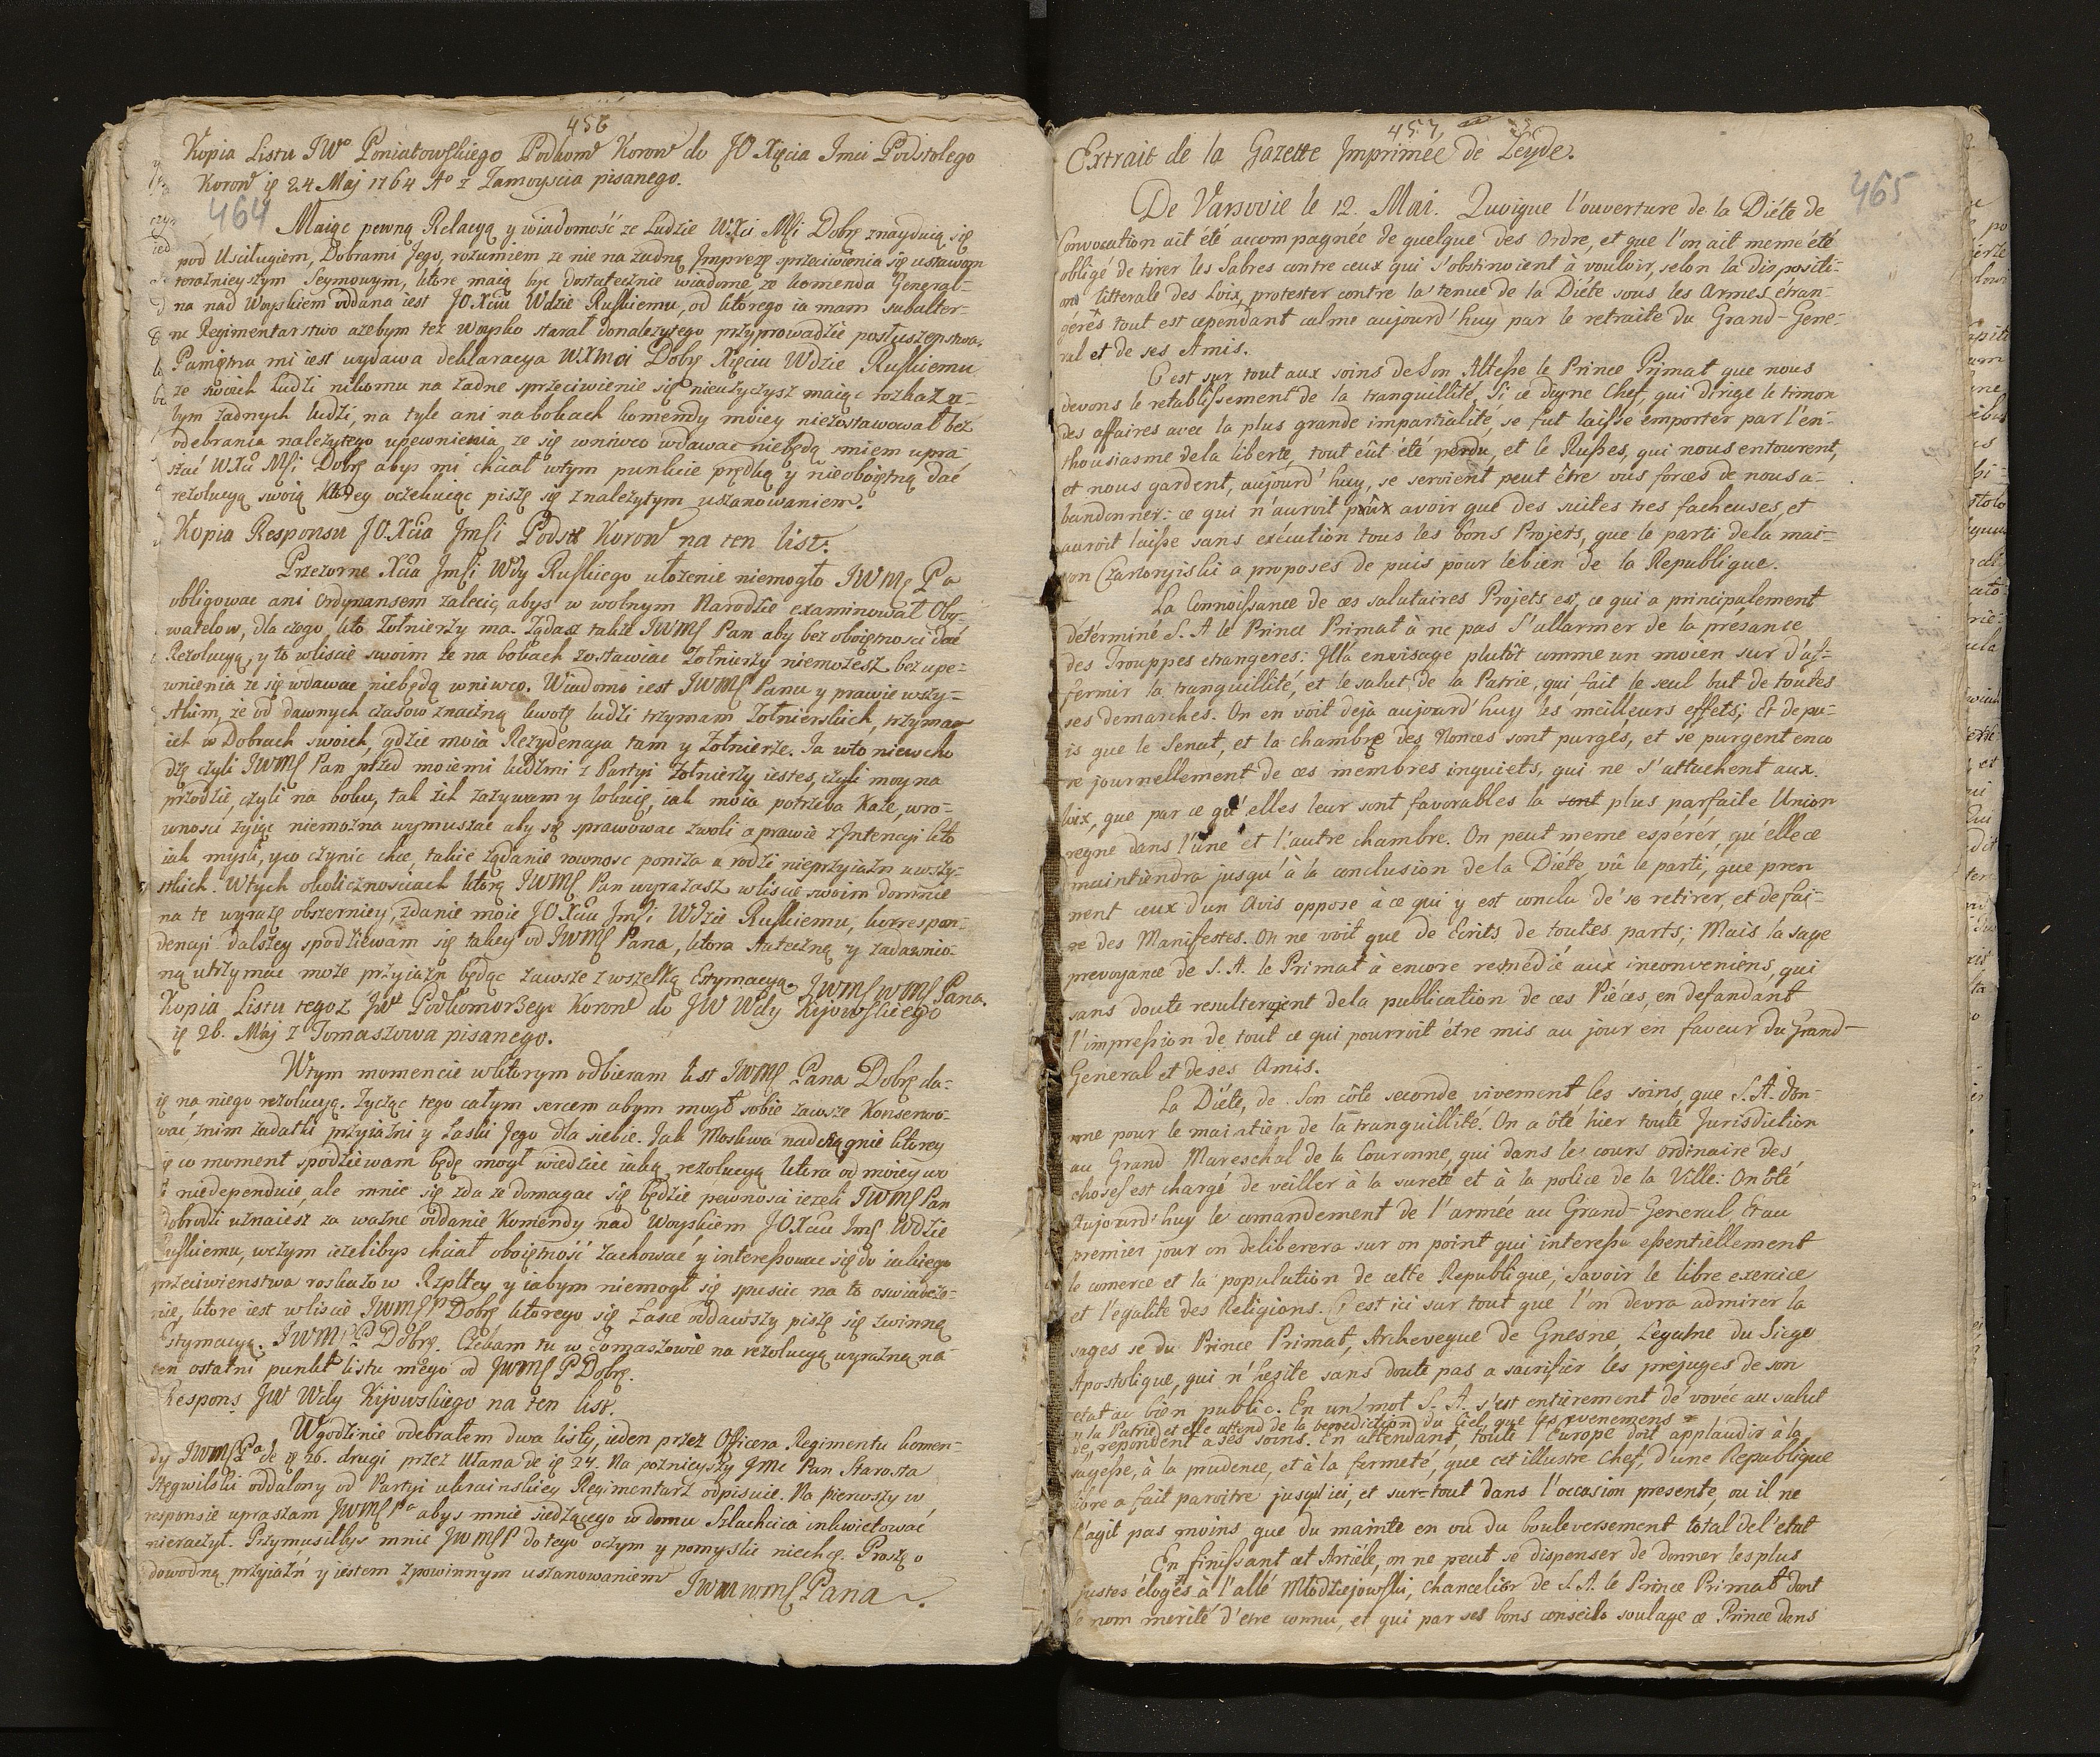 456
Kopia Listu JWo Poniatowskiego Podkom Koron do JO Xięcia Imci Podstolego
Koron ię 24 Maj 1764 Ao z Zamoyscia pisanego.
464
Maiąc pewną Relacyą y wiadomość ze Ludzie WXci Mſi Dobrę znayduią się
pod Uściługiem, Dobrami Jego, rozumiem ze nie na żadną Jmprezę sprzeciwienia się ustawom
teraznieyszym Seymowym, ktore maią byc dostatecznie wiadome, ze komenda General-
na nad Woyskiem oddana iest JO.Xciu Wdzie Ruskiemu, od ktorego ia mam subalter-
ne Regimentarstwo azebym tez Woysko staral donalezytego przyprowadzic posłuszenstwa.
Pamiętna mi iest wydawa deklaracya WXMci Dobrę Xięciu Wdzie Ruskiemu
ze swoich Ludzi nikomu na żadne sprzeciwienie się nieuzyczysz maiąc rozkaz a-
bym żadnych ludzi, na tyle ani na bokach komendy moiey niezostawował bez
odebrania należytego upewnienia, ze się wniwco wdawac niebędą smiem upra-
szać WXci Mſi Dobrę abys mi chciał wtym punkcie prędką y nieoboiętną dać
rezolucyą swoią Ktorey oczekuiąc piszę się znależytym uszanowaniem.
Kopia Responsu JO.Xcia Jmſi Podst Koron na ten list.
Przezorne Xcia Jmſi Wdy Ruskiego ułożenie niemogło JWMę Pa
obligowac ani Ordynansem zalecić abys w wolnym Narodzie examinował Oby-
watelow, dla czego kto Zołnierzy ma. Ządasz także JWMſ Pan aby bez oboiętnosci dać
Rezolucyą, y to wliscie swoim ze na bokach zostawiac Zołnierzy niemożesz bez upe-
wnienia ze się wdawac niebędą wniwco. Wiadomo iest JWMſ Panu y prawie wszy-
stkim, ze od dawnych czasow znaczną kwotę ludzi trzymam Zołnierskich, trzymam
ich w Dobrach swoich, gdzie moia Rezydencya tam y Zołnierze. Ja wto niewcho
dzę czyli JWMſ Pan przed moiemi ludzmi z Partyi Zołnierzy iestes, czyli moy na
przodzie, czyli na boku, tak ich zazywam y lokuię, iak moia potrzeba Każe, wro-
wnosci zyiąc niemożna wymuszac aby się sprawowac zwoli a prawie z Jntencyi kto
iak mysli, y co czynic chce, takie żądanie rownosc poniża a rodzi nieprzyiaźn uwszy-
stkich. Wtych okolicznosciach ktorą JWMſ Pan wyrażasz wliscie swoim do mnie
na te wyrażę obszerniey, zdanie moie JO Xciu Jmſi Wdzie Ruskiemu, korrespon-
dencyi dalszey spodziewam się takiey od JWMſ Pana, ktora stateczną y zadawnio-
ną utrzymac może przyiaźn będąc zawsze z wszelką Estymacyą. JWMſ WMſ Pana.
Kopia Listu tegoż JW Podkomorzego Koron do JW Wdy Kijowskiego
ię 26. Máj z Tomaszowa pisanego.
Wtym momencie wktorym odbieram list JWMſ Pana Dobrę da-
ię na niego rezolucyą. Zycząc tego całym sercem abym mogł sobie zawsze Konserwo-
wać, znim zadatki przyiaźni y Łaski Jego dla siebie. Jak Moskwa nadciągnie ktorey
ię co moment spodziewam będę mogł wiedziec iaką rezolucyą ktora od moiey wo
li niedependuie, ale mnie się zda ze domagac się będzie pewnosci iezeli JWMſ Pan
Dobrodzi uznaiesz za ważne oddanie Komendy nad Woyskiem JO.Xciu Jmſ Wdzie
Ruskiemu, wczym iezelibys chciał oboiętność zachować y intereſsowac się do iakiego
przeciwienstwa roskazow Rzpltey y iabym niemogł się spuscic na to oswiadcze-
nie, ktore iest wliscie JWMſ P Dobrę ktorego się Łasce oddawszy piszę się zwinną
Estymacyą. JWMſ P Dobrę. Czekam tu w Tomaszowie na rezolucyą wyrazną na
ten ostatni punkt listu mego od JWMſ P Dobrę.
Respons JW Wdy Kijowskiego na ten list.
Wgodzinie odebrałem dwa listy, ieden przez Officera Regimentu komen-
dy JWMſ Pa de ię 26. drugi przez Ułana de ię 24. Na pozniejszy Jmc Pan Starosta
Stęgwilski oddalony od Partyi ukrainskiey Regimentarz odpisuie. Na pierwszy w
responsie upraszam JWMſ Pa abys mnie siedzącego w domu Szlachcica inkwietować
nieraczył. Przymusiłbys mnie JWMſ P do tego oczym y pomyslic niechcę. Proszę o
dowodną przyiaźń y iestem zpowinnym uszanowaniem
JWM WMſ Pana.
457
465
Extrait de la Gazette Jmprimée de Leyde.
De Varsovie le 12. Mai. Quoique l'ouverture de la Diéte de
Convocation ait été accompagnée de quelque des Ordre, et que l'on ait meme été
obligé de tirer les Sabres contre ceux qui s'obstinoient à vouloir, selon la dispositi-
on litterale des Loix, protester contre la tenue de la Diéte sous les Armes etran-
gérès tout est cependant calme aujourd'huy par le retraite du Grand-Gene-
ral et de ses Amis.
C'est sur tout aux soins de Son Alteſse le Prince Primat que nous
devons le retabliſsement de la tranquillité, Si ce digne Chef, qui dirige le timon
des affaires avec la plus grande impartialité, se fut laiſse emporter par l'en-
thousiasme de la liberte, tout eût été perdu, et le Ruſses, qui nous entourent,
et nous gardent, aujourd'huy, se seroient peut être vus forcés de nous a-
bandonner: ce qui n'auroit avoir que des suites tres facheuses, et
auroit laiſse sans exécution tous les bons Projets, que le parti de la mai-
son Czartoryiski a proposés de puis pour le bien de la Republique.
La Connoiſsance de ces salutaires Projets est, ce qui a principalement
détérminé S. A le Prince Primat à ne pas S'allarmer de la présance
des Trouppes etrangeres: Jl l'a envisagé plutôt comme un moien sur d'af-
fermir la tranquillité, et le salut de la Patrie, qui fait le seul but de toutes
ses demarches. On en voit deja aujourd'huy les meilleurs effets; Et depu-
is que le Senat, et la chambre des Nonces sont purgés, et se purgent enco
re journellement de ces membres inquiets, qui ne s'attachent aux
loix, que par ce qu'elles leur sont favorables la sont plus parfaite Union
regne dans l'une et l'autre chambre. On peut meme espérér, qu'elle ce
maintiendra jusqu'à la conclusion de la Diéte, vû le parti, que pren
nent ceux d'un Avis opposé à ce qui y est conclu de se retirer, et de fai-
re des Manifestes. On ne voit que de Ecrits de toutes parts; Mais la sage
prevoyance de S. A. le Primat à encore remédié aux inconveniens, qui
sans doute resulteroient de la publication de ces Piéces, en defandant
l'impreſsion de tout ce qui pourroit étre mis au jour en faveur du Grand-
General et de ses Amis.
La Diéte, de Son côte seconde vivement les soins, que S. A. don-
ne pour le maintien de la tranquillité. On a ôté hier toute Jurisdiction
au Grand Mareschal de la Couronne, qui dans le cours ordinaire des
choses est chargé de veiller à la sureté et à la police de la Ville: On ôte
Aujourd'huy le comandement de l'armée au Grand-General, Et au
premier jour on deliberera sur on point qui intereſse eſsentiellement
le comerce et la population de cette Republique; Savoir le libre exercice
et l'egalite des Religions. C'est ici sur tout que l'on devra admirer la
sages se du Prince Primat, Archeveque de Gnesne, Legatne du Siege
Apostolique, qui n'hesite sans doute pas a sacrifier les prejuges de son
etat au bien public. En un mot S. A. s'est entiérement dévovée au salut
de la Patrie, et elle attend de la benediction du Ciel, que les evenemens
repondent a ses soins. En attendant, toute l'Europe doit applaudir à la
sageſse, à la prudence, et à la fermeté, que cet illustre Chef, d'une Republique
libre a fait paroitre jusqu'ici, et sur-tout dans l'occasion presente, ou il ne
s'agit pas moins que du mainte en ou du bouleversement total de l'etat
En finiſsant cet Artiéle, on ne peut se dispenser de donner les plus
justes éloges à l'allé Młodziejowski, chancelier de S. A. le Prince Primat dont
le nom merité d'etre connu, et qui par ses bons conseils soulage ce Prince dans